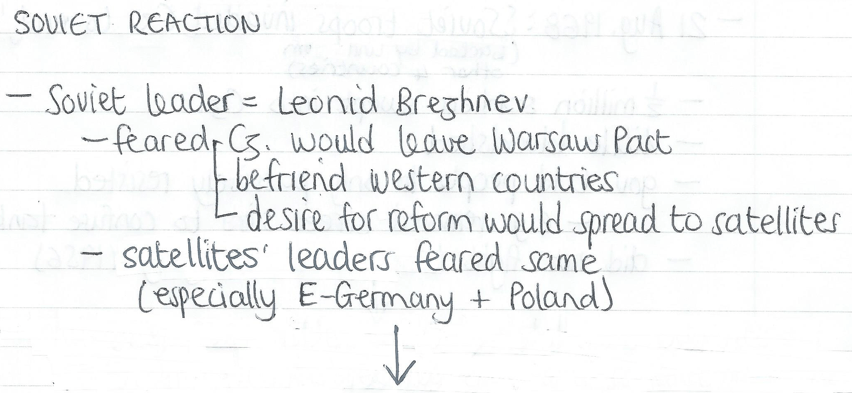 SOVIET REACTION
- Soviet leader = Leonid Brezhnev
- feared Cz. would leave Warsaw Pact
befriend western countries
desire for reform would spread to satellites
- satellites' leaders feared same
(especially E-Germany + Poland)